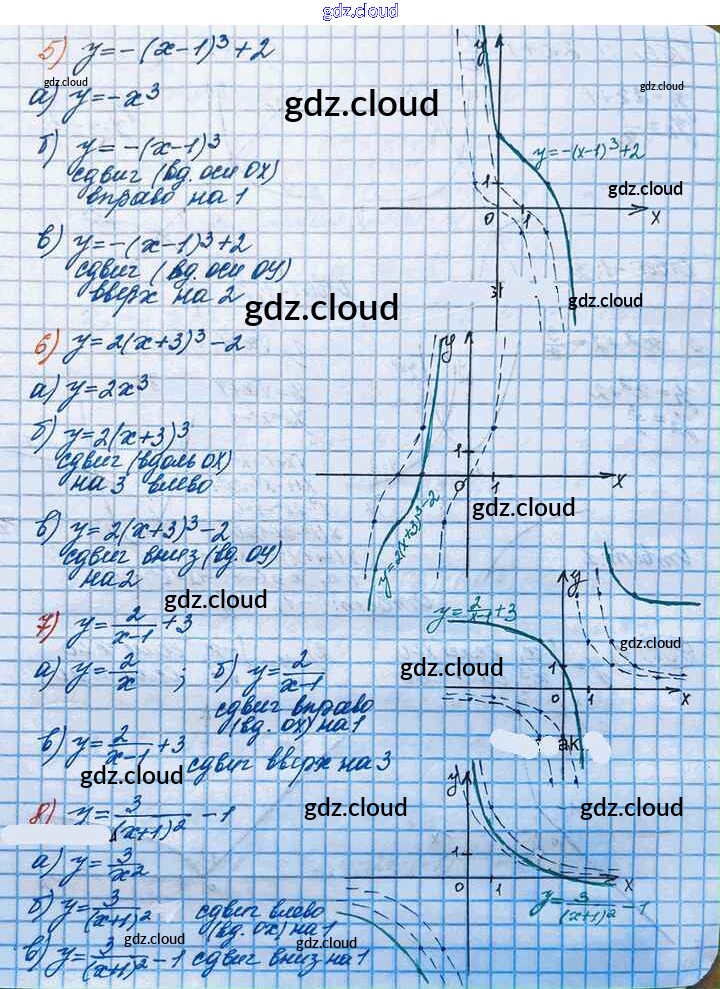 gdz.cloud
5) y = -(x-1)³+2
gdz.cloud
а) y = -x³
gdz.cloud
б) y = -(x-1)³
сдвиг (вд. оси OX)
вправо на 1
в) y = -(x-1)³+2
сдвиг (вд. оси OY)
вверх на 2
gdz.cloud
y
gdz.cloud
y = -(x-1)³+2
gdz.cloud
1
0
1
x
gdz.cloud
6) y = 2(x+3)³-2
а) y = 2x³
б) y = 2(x+3)³
сдвиг (вдоль OX)
на 3 влево
в) y = 2(x+3)³-2
сдвиг вниз (вд. OY)
на 2
gdz.cloud
y
1
0
1
x
gdz.cloud
y = 2(x+3)³-2
7) y = 2/(x-1) + 3
а) y = 2/x ; б) y = 2/(x-1)
сдвиг вправо
(вд. OX) на 1
в) y = 2/(x-1) + 3
сдвиг вверх на 3
gdz.cloud
y = 2/(x-1) + 3
y
gdz.cloud
gdz.cloud
1
0
1
x
ak
8) y = 3/(x+1)² - 1
а) y = 3/x²
б) y = 3/(x+1)² сдвиг влево
(вд. OX) на 1
gdz.cloud
gdz.cloud
в) y = 3/(x+1)² - 1 сдвиг вниз на 1
y
gdz.cloud
gdz.cloud
1
0
1
x
y = 3/(x+1)² - 1